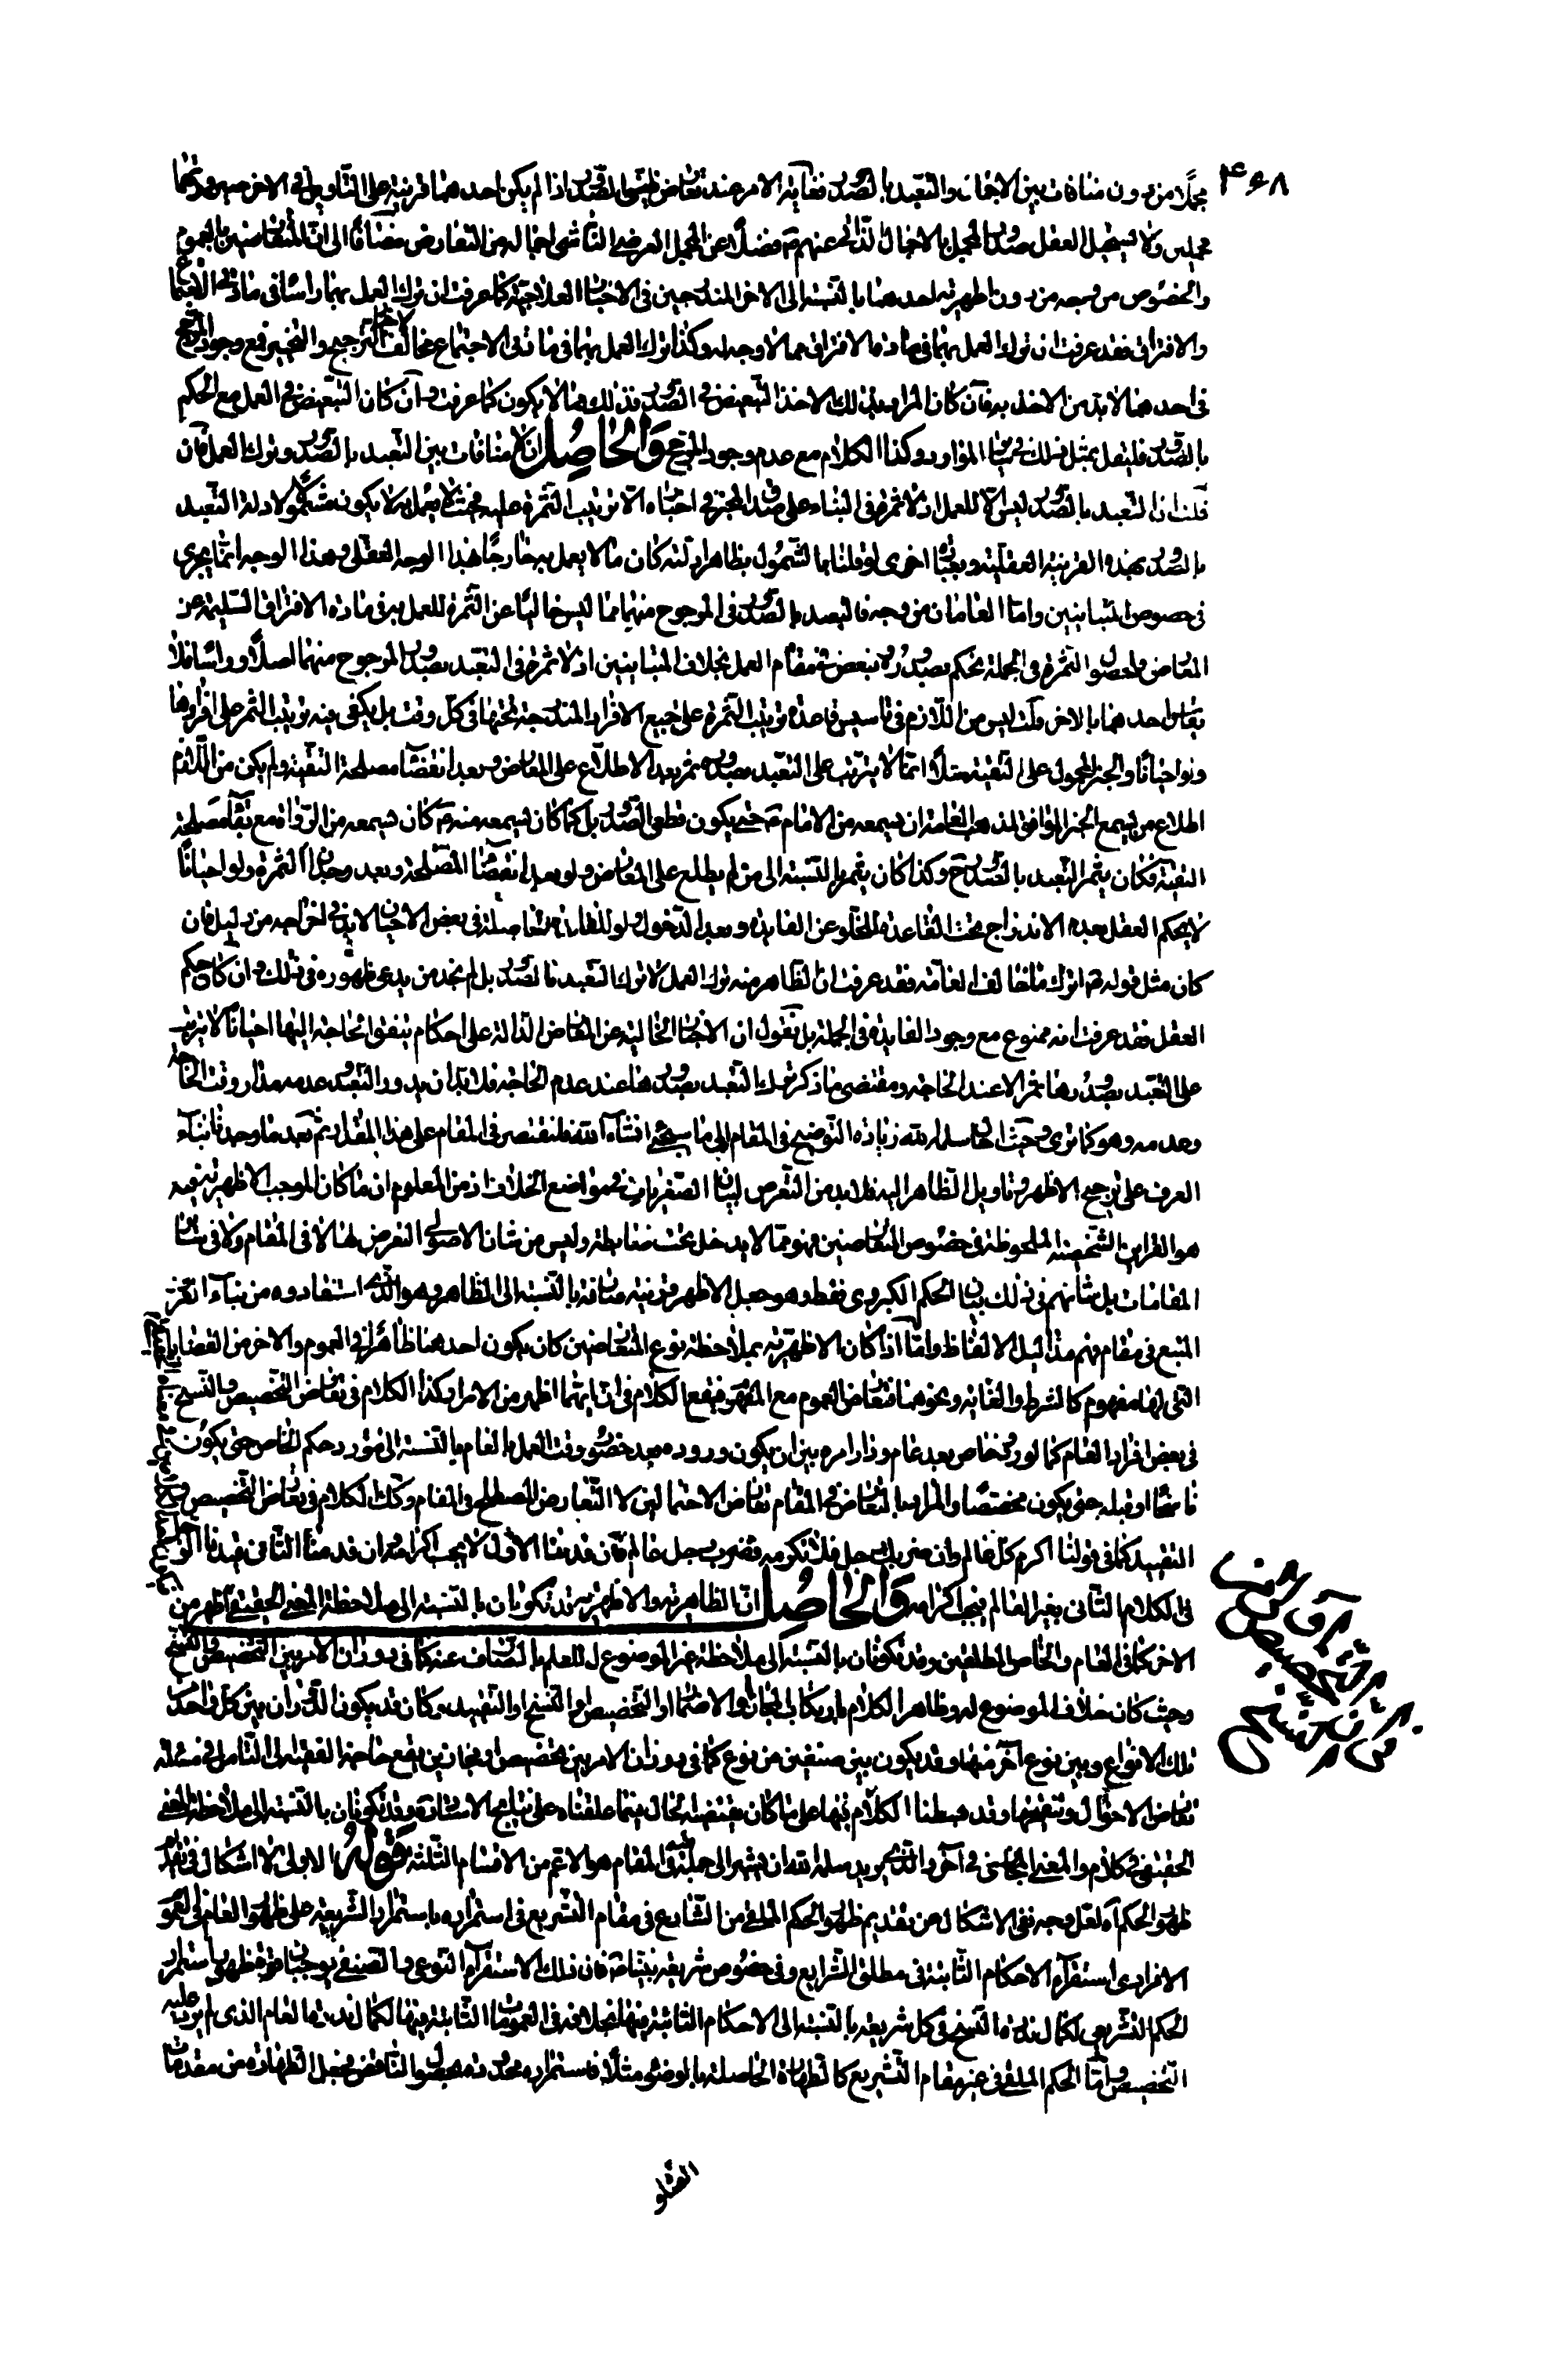 ۴۶۸
مجملا من دون منافات بين الاجمال والتعبد بالصدور فغاية الامر عند تعارض ظنيى الصدور اذا لم يكن احدهما قرينة على التاويل فى الاخر صيرورتهما
مجملين ولا يستحيل العقل صدور المجمل بالاجمال الذاتى عنهم ع فضلا عن المجمل العرضى الناشى اجماله من التعارض مضافا الى ان المتعارضين بالعموم
والخصوص من وجه من دون اظهرية احدهما بالنسبة الى الاخر المندرجين فى الاخبار العلاجية كما عرفت ان ترك العمل بهما راسا فى مادتى الاجتماع
والافتراق فقد عرفت ان ترك العمل بهما فى مادة الافتراق مما لا وجه له وكذا ترك العمل بهما فى مادة الاجتماع مخالف لاخبار الترجيح والتخيير فمع وجود المرجح
فى احدهما لا بد من الاخذ به فان كان المراد بذلك الاخذ التبعيض فى الصدور فذلك مما لا يكون كما عرفت وان كان التبعيض فى العمل مع الحكم
بالصدور فليقل بمثل ذلك فى جميع الموارد وكذا الكلام مع عدم وجود المرجح والحاصل انه لا منافات بين التعبد بالصدور وترك العمل فان
قلت ان التعبد بالصدور ليس الا للعمل اذ لا ثمرة فى البناء على صدور الخبر فى اخباره الا ترتيب الثمرة عليه فحيث لا يعمل به لا يكون مشمولا لادلة التعبد
بالصدور بهذه القرينة العقلية وبعبارة اخرى لو قلنا بالشمول بظاهر ادلته كان ما لا يعمل به خارجا بهذا الوجه العقلى وهذا الوجه انما يجرى
فى خصوص المتباينين واما العامان من وجه فالتعبد بالصدور فى المرجوح منهما مما ليس خاليا عن الثمرة للعمل به فى مادة الافتراق السليمة عن
المعارض فلحصول الثمرة فى الجملة يحكم بصدوره وببعض فى مقام العمل بخلاف المتباينين اذ لا ثمرة فى التعبد بصدور المرجوح منهما اصلا وراسا فلا
يقاس احدهما بالاخر قلت ليس من اللازم فى تاسيس قاعدة ترتيب الثمرة على جميع الافراد المندرجة تحتها فى كل وقت بل يكفى فيه ترتيب الثمر على افرادها
ولو احيانا والخبر المحمول على التقية مثلا انما لا يترتب على التعبد بصدوره ثمر بعد الاطلاع على المعارض وبعد انقضاء مصلحة التقية ولم يكن من اللازم
اطلاع من يسمع الخبر الموافق لمذهب العامة ان يسمعه من الامام ع حتى يكون قطعى الصدور بل كما كان يسمعه منه ع كان يسمعه من الرواة مع بقاء مصلحة
التقية فكان يثمر التعبد بالصدور ح وكذا كان يثمر بالنسبة الى من لم يطلع على المعارض ولو بعد انقضاء المصلحة وبعد وجدان الثمرة ولو احيانا
لا يحكم العقل بعدم الاندراج تحت القاعدة للخلو عن الفايدة وبعد الدخول ولو للفايدة الحاصلة فى بعض الاحيان لا بد فى اخراجه من دليل فان
كان مثل قوله ع اترك ما خالف العامة فقد عرفت ان الظاهر منه ترك العمل لا ترك التعبد بالصدور بل لم نجد من يدعى ظهوره فى ذلك وان كان حكم
العقل فقد عرفت انه ممنوع مع وجود الفايدة فى الجملة بل نقول ان الاخبار الخالية عن المعارض الدالة على احكام يتفق الحاجة اليها احيانا لا يترتب
على التعبد بصدورها ثمر الا عند الحاجة ومقتضى ما ذكر ترك التعبد بصدورها عند عدم الحاجة فلا بد ان يدور التعبد وعدمه مدار وقت الحاجة
وعدمه وهو كما ترى وحيث احال سلمه الله زيادة التوضيح فى المقام الى ما سيجئ انشاء الله فلنقتصر فى المقام على هذا المقدار ثم بعد ما وجدنا بناء
العرف على ترجيح الاظهر وتاويل الظاهر اليه فلا بد من التعرض لبيان الصغريات فى مواضع الخلاف اذ من المعلوم ان ما كان الموجب لاظهريته فيه
هو القراين الشخصية الملحوظة فى خصوص المتعارضين فهو مما لا يدخل تحت ضابطة وليس من شان الاصولى التعرض لها لا فى المقام ولا فى ساير
المقامات بل شانهم فى ذلك بيان الحكم الكبروى فقط وهو جعل الاظهر قرينة صارفة بالنسبة الى الظاهر وهو الذى استفادوه من بناء العرف
المتبع فى مقام فهم مداليل الالفاظ واما اذا كان الاظهرية بملاحظة نوع المتعارضين كان يكون احدهما ظاهرا فى العموم والاخر من القضايا
التى لها مفهوم كالشرط والغاية ونحوهما فتعارض العموم مع المفهوم فيقع الكلام فى ان ايتهما اظهر من الاخر وكذا الكلام فى تعارض التخصيص والنسخ
فى بعض افراد العام كما لو ورد خاص بعد عام ودار امره بين ان يكون وروده بعد حضور وقت العمل بالعام بالنسبة الى مورد حكم الخاص حتى يكون
ناسخا او قبله حتى يكون مخصصا والمراد بالتعارض فى المقام تعارض الاحتمالين لا التعارض المصطلح فى المقام وكذا الكلام فى تعارض التخصيص مع
التقييد كما فى قولنا اكرم كل عالم وان ضربك رجل فلا تكرمه فضرب رجل عالم فان قدمنا الاول لا يجب اكرامه وان قدمنا الثانى قيدنا الرجل
فى الكلام الثانى بغير العالم فيجب اكرامه والحاصل ان الظاهرية والاظهرية قد تكونان بالنسبة الى ملاحظة المعنى الحقيقى اظهر من
الاخر كما فى العام والخاص المطلقين وقد تكونان بالنسبة الى ملاحظة غير الموضوع له للعلم بالصارف عنه كما فى دوران الامر بين التخصيص والنسخ
وحيث كان خلاف الموضوع له وظاهر الكلام بارتكاب المجاز او الاضمار او التخصيص او النسخ او التقييد وكان قد يكون الدوران بين كل واحد من
تلك الانواع وبين نوع آخر منها وقد يكون بين صنفين من نوع كما فى دوران الامر بين تخصيص او مجازين يقع حاجة الفقيه الى التامل فى مسئلة
تعارض الاحوال وتنقيحها وقد بسطنا الكلام فيها على ما كان يقتضيه الحال فيما علقناه على نتايج الاستاد وقد تكونان بالنسبة الى ملاحظة المعنى
الحقيقى فى كلام والمعنى المجازى فى آخر والذى يريد سلمه الله ان يشير الى جملة منه فى المقام هو الاعم من الاقسام الثلثة قوله الاولى لا اشكال فى تقديم
ظهور الحكم آه لعل وجه نفى الاشكال عن تقديم ظهور الحكم الملقى من الشارع فى مقام التشريع فى استمراره باستمرار الشريعة على ظهور العام فى العموم
الافرادى استقراء الاحكام الثابتة فى مطلق الشرايع وفى خصوص شريعة نبينا ص فان ذلك الاستقراء النوعى والصنفى يوجبان قوة ظهور استمرار
الحكم التشريعى لكمال ندرة النسخ فى كل شريعة بالنسبة الى الاحكام الثابتة فيها بخلافه فى العمومات الثابتة فيها لكمال ندرة العام الذى لم يرد عليه
التخصيص واما الحكم الملقى فى غير مقام التشريع كالطهارة الحاصلة بالوضوء مثلا فاستمراره محدودة بحصول الناقض فجعل الطهارة من مقدمات